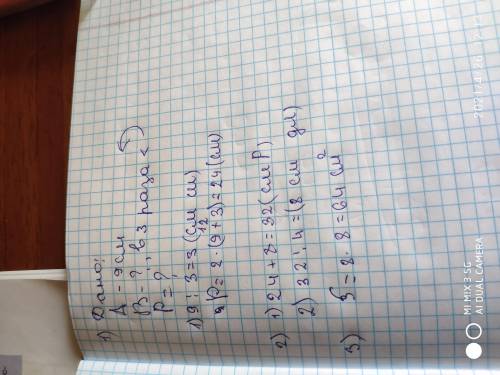 1) Дано:
А - 9 см
В - ?, в 3 раза <
Р = ?
1) 9 : 3 = 3 (см ш)
12
2) Р = 2 · (9 + 3) = 24 (см)
2) 1) 24 + 8 = 32 (см Р)
2) 32 : 4 = (8 см дл)
3) S = 8 · 8 = 64 см²
MI MIX 3 5G
AI DUAL CAMERA